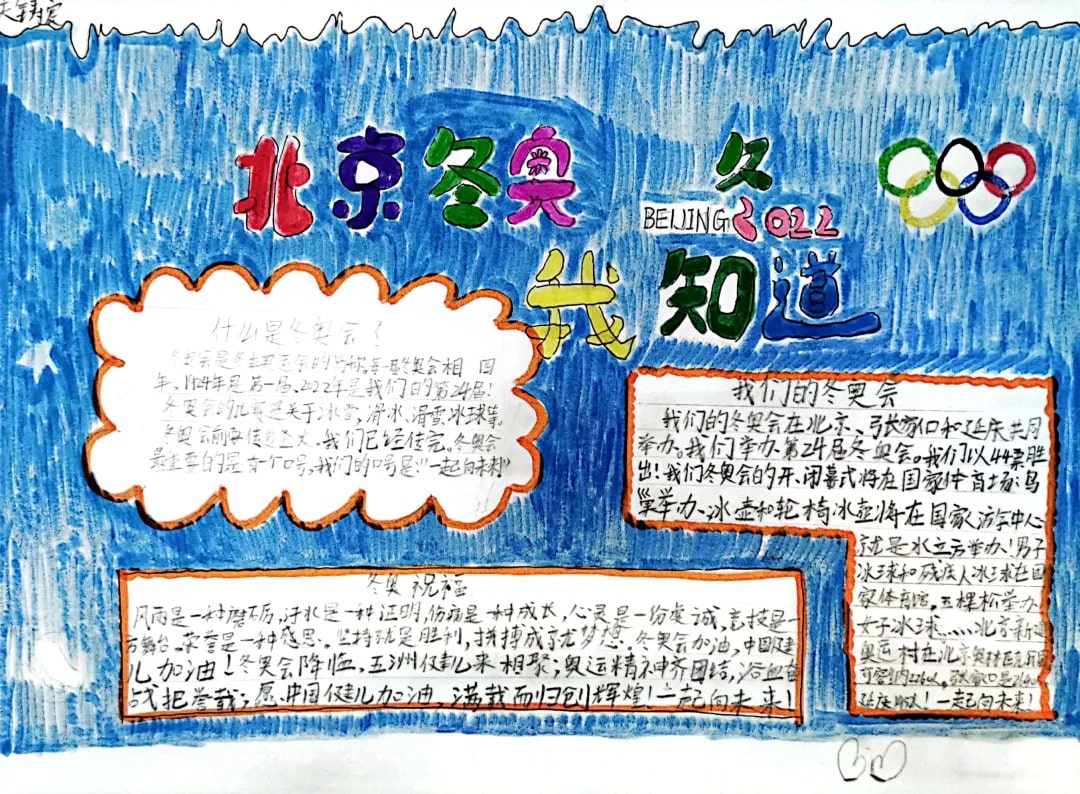 北京冬奥
冬
BEIJING 2022
我知道
什么是冬奥会?
冬奥会是冬季奥运会的简称每一届冬奥会相 四
年、1924年是第一届、2022年是我们的第24届!
冬奥会的比赛是关于冰雪,滑冰、滑雪冰球等。
冬奥会前要传递圣火,我们已经传完。冬奥会
最主要的是有个口号,我们的口号是“一起向未来”
我们的冬奥会
我们的冬奥会在北京、张家口和延庆共同
举办。我们举办第24届冬奥会。我们以44票胜
出!我们冬奥会的开、闭幕式将在国家体育场:鸟
巢举办、冰壶和轮椅冰壶将在国家游泳中心
就是水立方举办!男子
冰球和残疾人冰球在国
家体育馆,五棵松举办
女子冰球……北京新建
奥运村在北京奥林匹克
可容纳
延庆 人!一起向未来!
冬奥祝福
风雨是一种磨砺,汗水是一种证明,伤痛是一种成长,心灵是一份虔诚,竞技是一
方舞台。荣誉是一种感恩。坚持就是胜利,拼搏成就梦想。冬奥会加油,中国健
儿加油!冬奥会降临,五洲健儿来相聚;奥运精神齐团结,浴血奋
战把誉载;愿中国健儿加油,满载而归创辉煌!一起向未来!